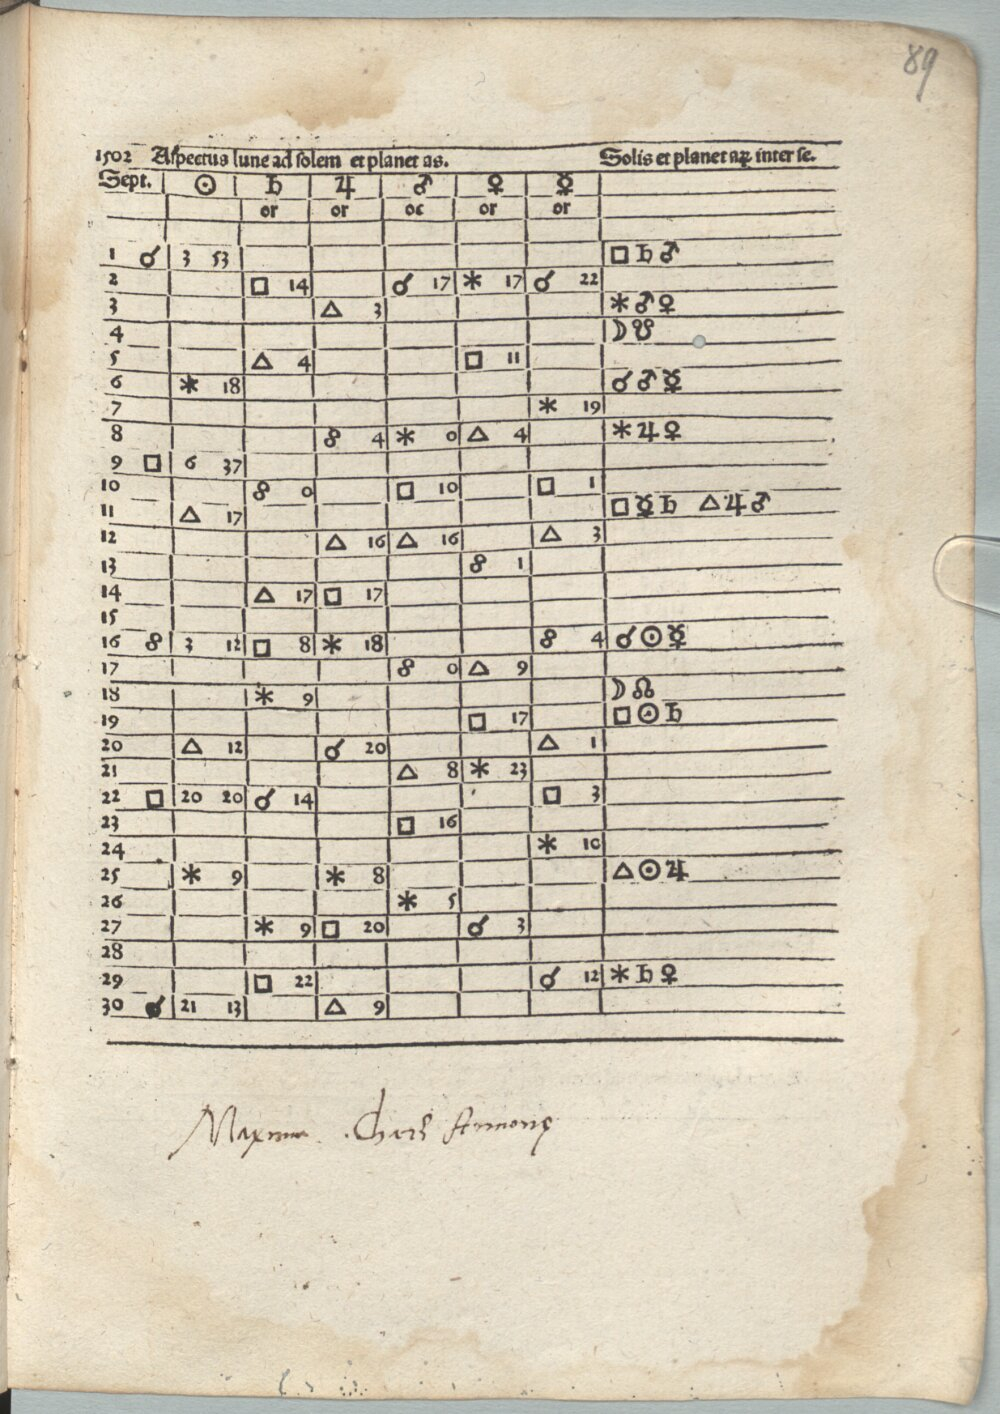 89
1502 Aspectus lune ad solem et planetas. Solis et planetaꝝ inter se.
Sept. ☉ ♄ ♃ ♂ ♀ ☿
or or oc or or
1 ☌ 3 53 □ ♄ ♂
2 □ 14 ☌ 17 ⚹ 17 ☌ 22
3 △ 3 ⚹ ♂ ♀
4 ☽ ☋
5 △ 4 □ 11
6 ⚹ 18 ☌ ♂ ☿
7 ⚹ 19
8 ☍ 4 ⚹ 0 △ 4 ⚹ ♃ ♀
9 □ 6 37
10 ☍ 0 □ 10 □ 1
11 △ 17 □ ☿ ♄ △ ♃ ♂
12 △ 16 △ 16 △ 3
13 ☍ 1
14 △ 17 □ 17
15
16 ☍ 3 12 □ 8 ⚹ 18 ☍ 4 ☌ ☉ ☿
17 ☍ 0 △ 9
18 ⚹ 9 ☽ ☊
19 □ 17 □ ☉ ♄
20 △ 12 ☌ 20 △ 1
21 △ 8 ⚹ 23
22 □ 20 20 ☌ 14 □ 3
23 □ 16
24 ⚹ 10
25 ⚹ 9 ⚹ 8 △ ☉ ♃
26 ⚹ 5
27 ⚹ 9 □ 20 ☌ 3
28
29 □ 22 ☌ 12 ⚹ ♄ ♀
30 ☌ 21 13 △ 9